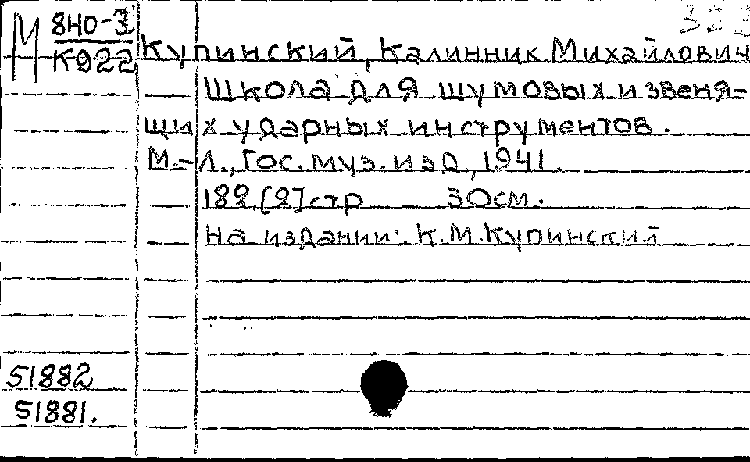 М 840-3
К922 Купинский, Калинник Михайлович
Школа для шумовых и звеня-
щих ударных инструментов.
М.-Л., Гос. муз. изд, 1941.
182,[2]стр 30см.
На издании: К.М.Купинский
51882
51881.